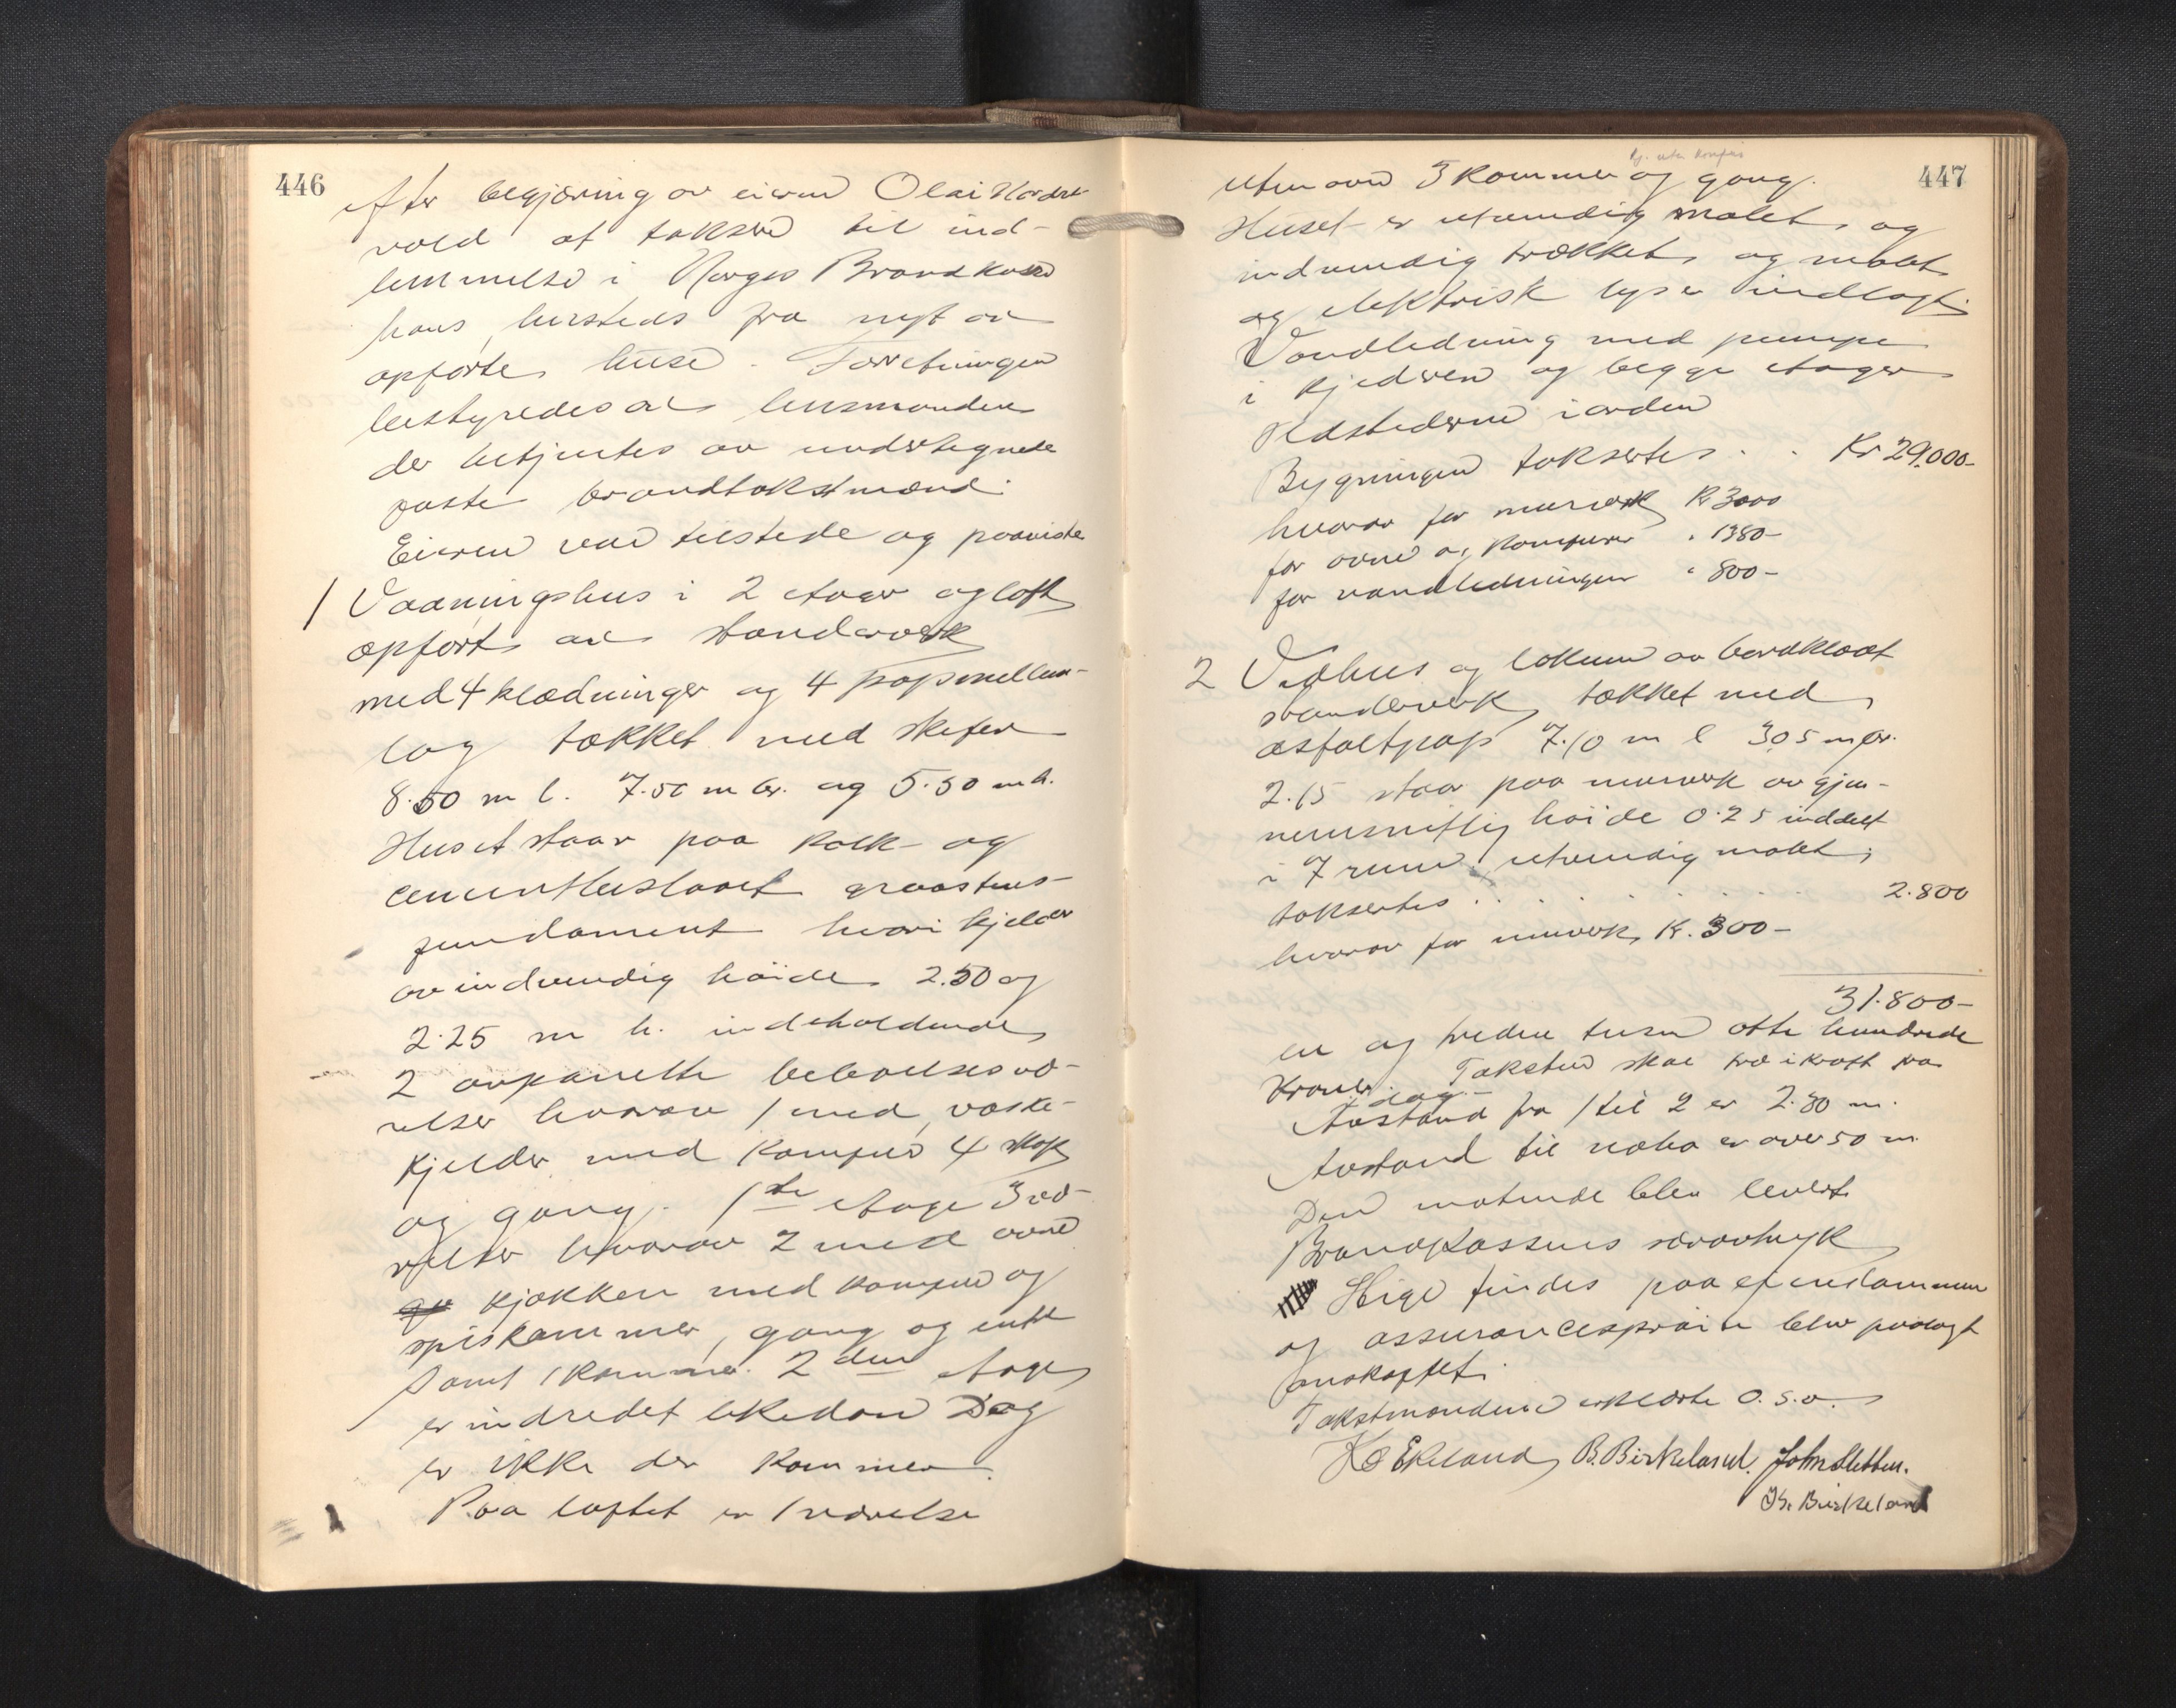 446
efter begjæring av eieren Olai Nordst-
vold at taksere til ind-
lemmelse i Norges Brandkasse
hans hersteds fra nyt av
opførte huse. Forretningen
bestyredes av lensmanden
der betjentes av undertegnede
faste brandtakstmænd.
Eieren var tilstede og paaviste
1 Vaaningshus i 2 etager og loft
opført av stenderverk
med 4 klædninger og 4 papmellem-
lag tækket med skifer
8.50 m l. 7.50 m br. og 5.50 m h.
Huset staar paa kalk- og
cementbeslaaet graastens-
fundament hvori kjelder
av indvendig høide 2.50 og
2.25 m h. indeholdende
2 avpanelte beboelsesvæ-
relser hvorav 1 med, vaske-
kjelder med komfur 4
og gang. 1ste etage 3 væ-
relser hvorav 2 med ovne
og kjøkken med komfur og
spiskammer, gang og entre
samt 1 kammer. 2den etage
er indredet likedan Dog
er ikke der kammer.
Paa loftet er 1 værelse
447
uten ovn 3 kammer og gang.
Huset er utvendig malet, og
indvendig trækket, og malt
og elektrisk lys er indlagt.
Vandledning med pumpe
i kjelderen og begge etager
Ildstederne i orden
Bygningen takseres . . Kr 29.000-
hvorav for murverk Kr 3000
for ovne og komfurer " 1380-
for vandledningen " 800-
2 Vedhus og lokum av bordklædt
stenderverk, tækket med
asfaltpap 7.10 m l 3.05 m br.
2.15 staar paa murverk av gjen-
nemsnitlig høide 0.25 inddelt
i 7 rum utvendig malet;
taksertes . . . . . . . 2.800
hvorav for murverk, Kr. 300-
31.800-
en og tredive tusen otte hundrede
Kroner. Taksten skal træ i kraft fra
dag.-
Avstand fra 1 til 2 er 2.80 m.
Avstand til nabo er over 50 m.
Den møtende blev levert
Brandkassens særavtryk
Stige findes paa eiendommen
og assurancesprøite blev paalagt
anskaffet.
Takstmændene erklærte o.s.v.
Ekeland B. Birkeland. John Sletten.
Birkeland